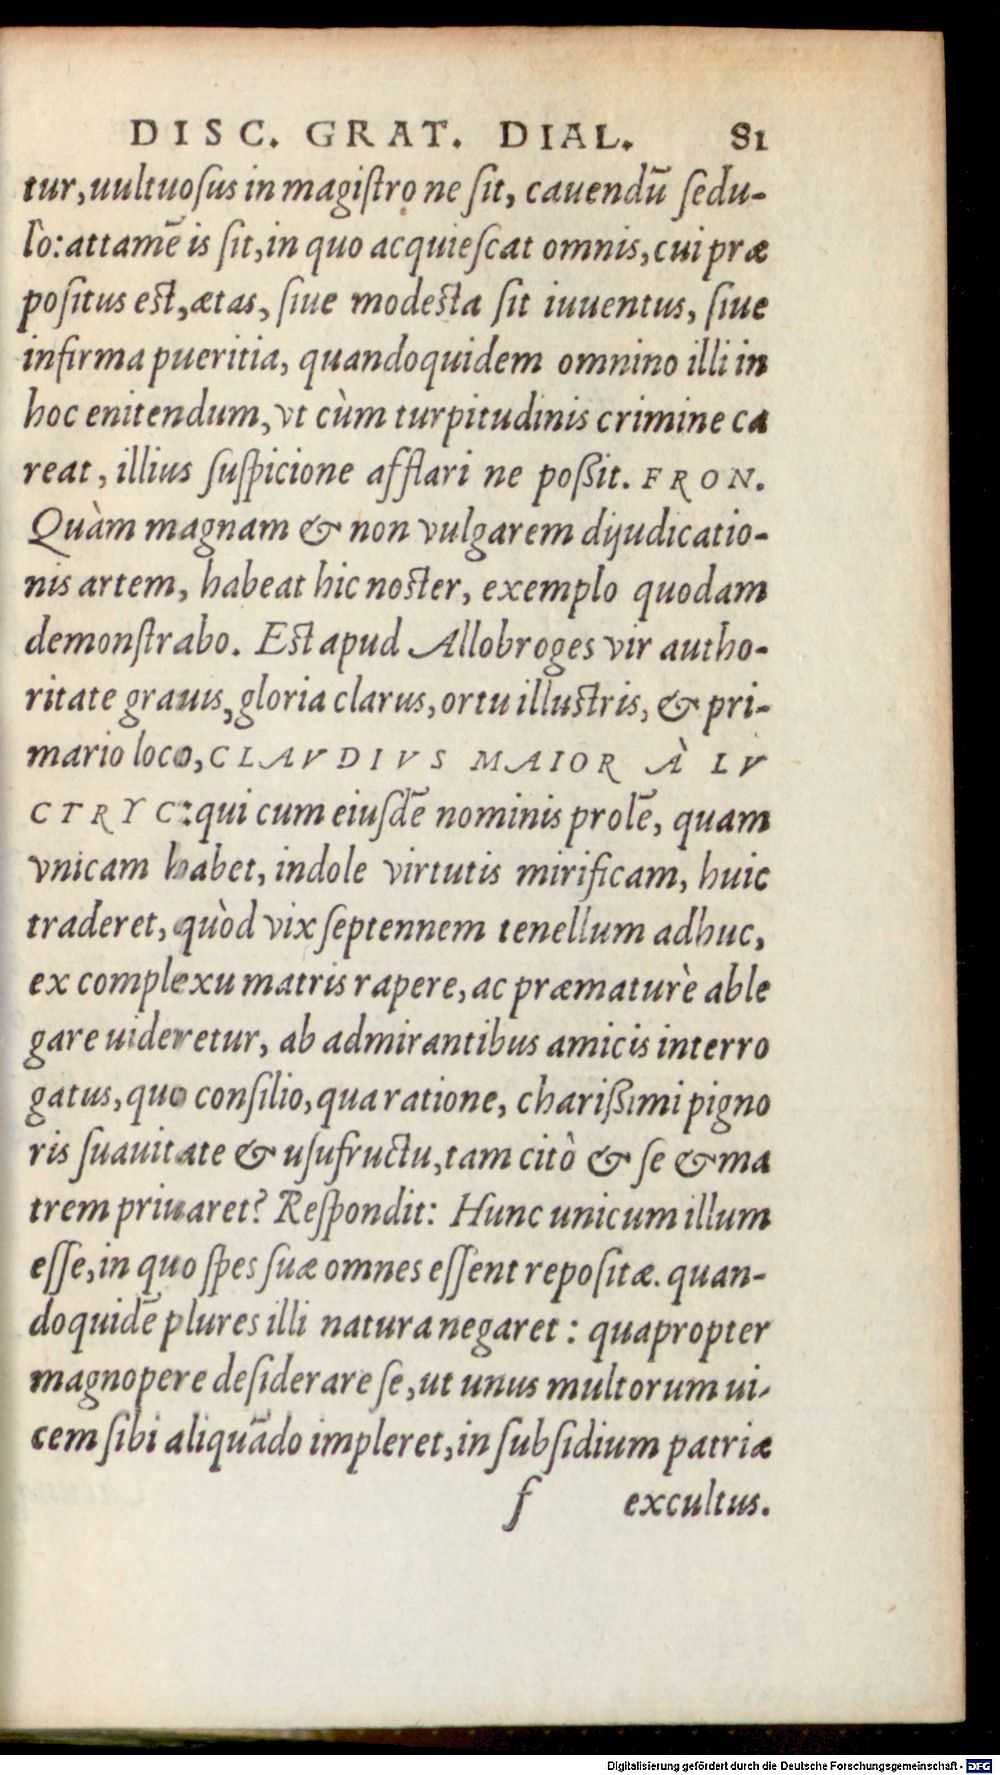 DISC. GRAT. DIAL. 81
tur, uultuoſus in magiſtro ne ſit, cauendū ſedu-
lo: attamē is ſit, in quo acquieſcat omnis, cui præ
poſitus est, ætas, ſiue modesta ſit iuuentus, ſiue
infirma pueritia, quandoquidem omnino illi in
hoc enitendum, vt cùm turpitudinis crimine ca
reat, illius ſuſpicione afflari ne poßit. FRON.
Quàm magnam & non vulgarem dijudicatio-
nis artem, habeat hic noster, exemplo quodam
demonſtrabo. Est apud Allobroges vir autho-
ritate grauis, gloria clarus, ortu illustris, & pri-
mario loco, CLAVDIVS MAIOR À LV
CTRYC: qui cum eiuſdē nominis prolē, quam
vnicam habet, indole virtutis mirificam, huic
traderet, quòd vix ſeptennem tenellum adhuc,
ex complexu matris rapere, ac præmaturè able
gare uideretur, ab admirantibus amicis interro
gatus, quo conſilio, qua ratione, charißimi pigno
ris ſuauitate & uſufructu, tam citò & ſe & ma
trem priuaret? Reſpondit: Hunc unicum illum
eſſe, in quo ſpes ſuæ omnes eſſent repoſitæ. quan-
doquidē plures illi natura negaret: quapropter
magnopere deſiderare ſe, ut unus multorum ui-
cem ſibi aliquādo impleret, in ſubſidium patriæ
f excultus.
Digitalisierung gefördert durch die Deutsche Forschungsgemeinschaft - DFG